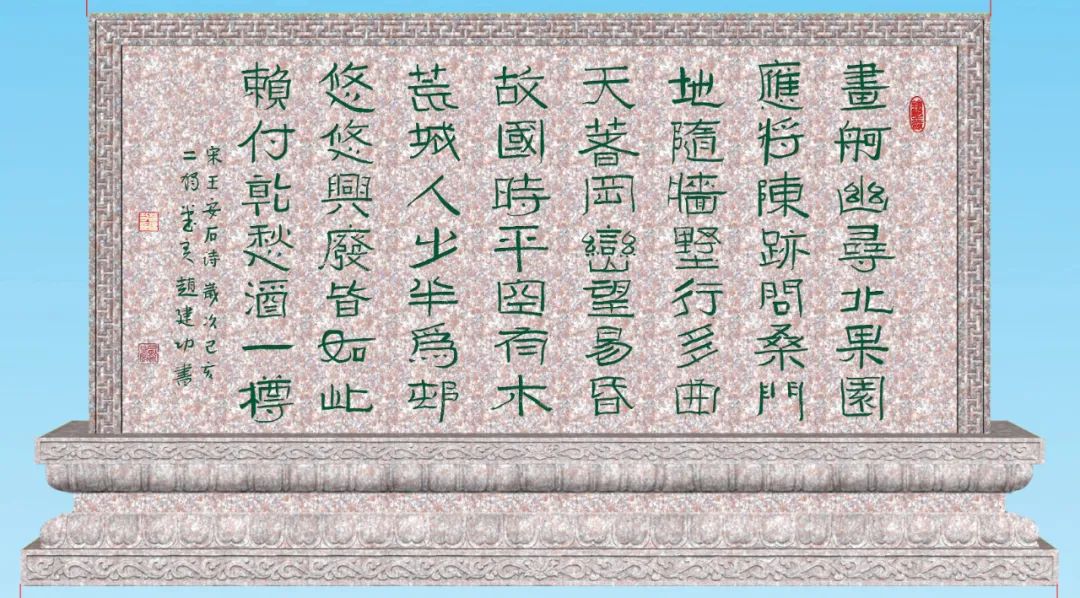 畫舸幽尋北果園
應將陳跡問桑門
地隨牆塹行多曲
天著岡巒望易昏
故國時平空有木
荒城人少半為邨
悠悠興廢皆如此
賴付乾愁酒一樽
宋王安石诗歲次己亥
二 趙建功書